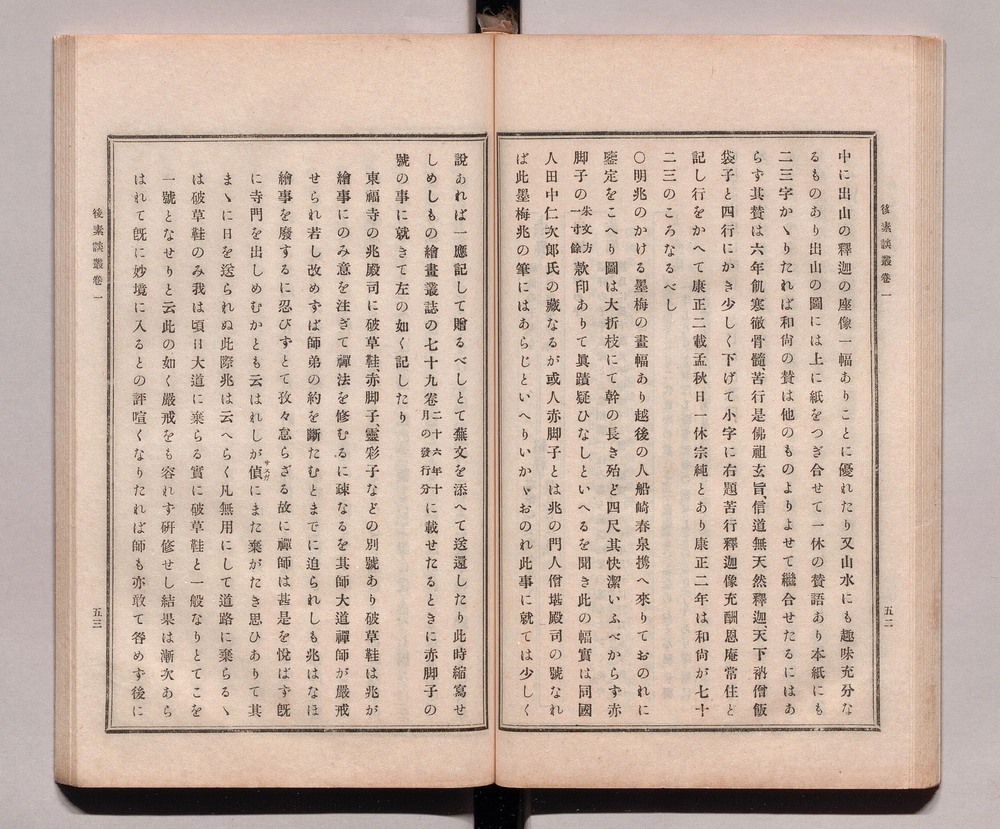 後素談叢卷一
五二
中に出山の釋迦の座像一幅ありことに優れたり又山水にも趣味充分な
るものあり出山の圖には上に紙をつぎ合せて一休の賛語あり本紙にも
二三字かゝりたれば和尙の賛は他のものよりよせて繼合せたるにはあ
らず其賛は六年飢寒徹骨髓、苦行是佛祖玄旨、信道無天然釋迦、天下衲僧飯
袋子と四行にかき少しく下げて小字に右題苦行釋迦像充酬恩庵常住と
記し行をかへて康正二載孟秋日一休宗純とあり康正二年は和尙が七十
二三のころなるべし
〇明兆のかける墨梅の畫幅あり越後の人船崎春泉携へ來りておのれに
鑒定をこへり圖は大折枝にて幹の長き殆ど四尺其快潔いふべからず赤
脚子の朱文方一寸餘款印ありて眞蹟疑ひなしといへるを聞き此の幅實は同國
人田中仁次郎氏の藏なるが或人赤脚子とは兆の門人僧堪殿司の號なれ
ば此墨梅兆の筆にはあらじといへりいかゞおのれ此事に就ては少しく
說あれば一應記して贈るべしとて蕪文を添へて送還したり此時縮寫せ
しめしもの繪畫叢誌の七十九卷二十六年十月の發行分に載せたるときに赤脚子の
號の事に就きて左の如く記したり
東福寺の兆殿司に破草鞋、赤脚子、靈彩子などの別號あり破草鞋は兆が
繪事にのみ意を注ぎて禪法を修むるに疎なるを其師大道禪師が嚴戒
せられ若し改めずば師弟の約を斷たむとまでに迫られしも兆はなほ
繪事を廢するに忍びすとて孜々怠らざる故に禪師は甚是を悅ばす旣
に寺門を出しめむかとも云はれしが偵サスガにまた棄がたき思ひありて其
まゝに日を送られぬ此際兆は云へらく凡無用にして道路に棄らるゝ
は破草鞋のみ我は頃日大道に棄らる實に破草鞋と一般なりとてこを
一號となせりと云此の如く嚴戒をも容れす研修せし結果は漸次あら
はれて旣に妙境に入るとの評喧くなりたれば師も亦敢て咎めず後に
後素談叢卷一
五三